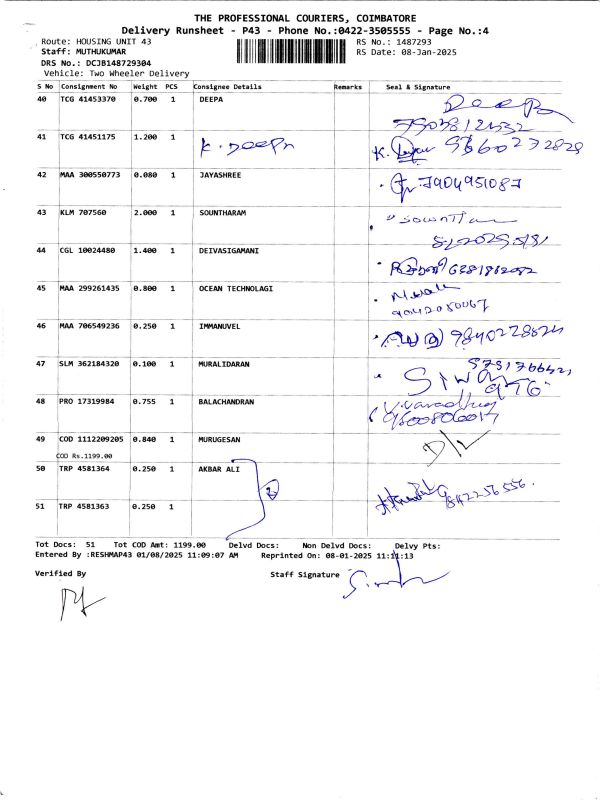 THE PROFESSIONAL COURIERS, COIMBATORE
Delivery Runsheet - P43 - Phone No.:0422-3505555 - Page No.:4
Route: HOUSING UNIT 43 RS No.: 1487293
Staff: MUTHUKUMAR RS Date: 08-Jan-2025
DRS No.: DCJB148729304
Vehicle: Two Wheeler Delivery
S No Consignment No Weight PCS Consignee Details Remarks Seal & Signature
40 TCG 41453370 0.700 1 DEEPA Deepa
41 TCG 41451175 1.200 1 K. Deepa
42 MAA 300550773 0.080 1 JAYASHREE 7904951087
43 KLM 707560 2.000 1 SOUNTHARAM
44 CGL 10024480 1.400 1 DEIVASIGAMANI
45 MAA 299261435 0.800 1 OCEAN TECHNOLAGI
9042080067
46 MAA 706549236 0.250 1 IMMANUVEL
47 SLM 362184320 0.100 1 MURALIDARAN
48 PRO 17319984 0.755 1 BALACHANDRAN
49 COD 1112209205 0.840 1 MURUGESAN D/L
COD Rs.1199.00
50 TRP 4581364 0.250 1 AKBAR ALI
51 TRP 4581363 0.250 1
Tot Docs: 51 Tot COD Amt: 1199.00 Delvd Docs: Non Delvd Docs: Delvy Pts:
Entered By :RESHMAP43 01/08/2025 11:09:07 AM Reprinted On: 08-01-2025 11:11:13
Verified By Staff Signature